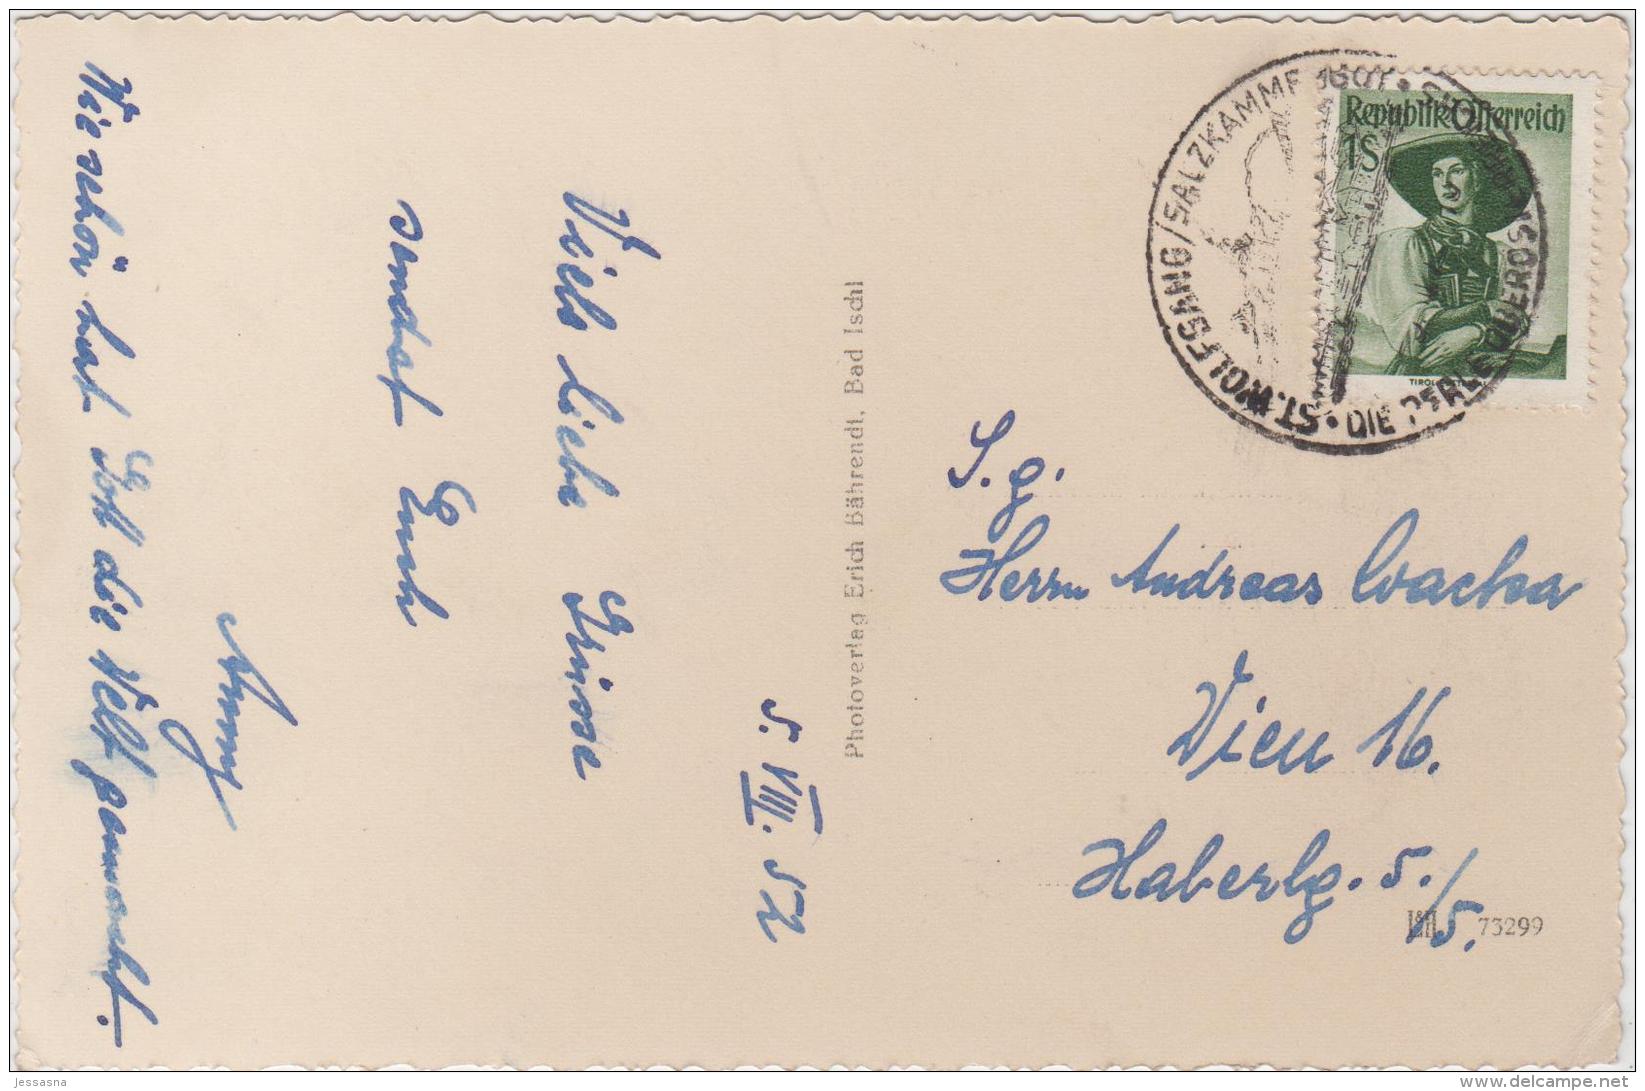 5. VIII. 52
Viele liebe Grüsse
sendet Euch
Anny
Wie schön hat Gott die Welt gemacht.
Photoverlag Erich Bährendt, Bad Ischl
Republik Österreich
1S
ST. WOLFGANG/SALZKAMMERGUT
DIE PERLE
S. g.
Herrn Andreas Wacha
Wien 16.
Haberlg. 5./5.
73299
jessasna
www.delcampe.net